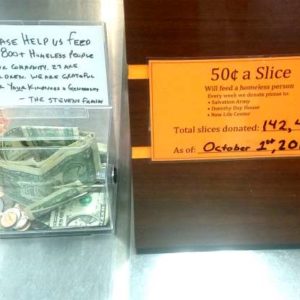 ASE HELP US FEED
800+ HOMELESS PEOPLE
OUR COMMUNITY, 27 ARE
LDREN. WE ARE GRATEFUL
R YOUR KINDNESS & GENEROSITY
- THE STEVENS FAMILY
50¢ a Slice
Will feed a homeless person
Every week we donate pizzas to:
• Salvation Army
• Dorothy Day House
• New Life Center
Total slices donated: 142,4
As of: October 1st, 20